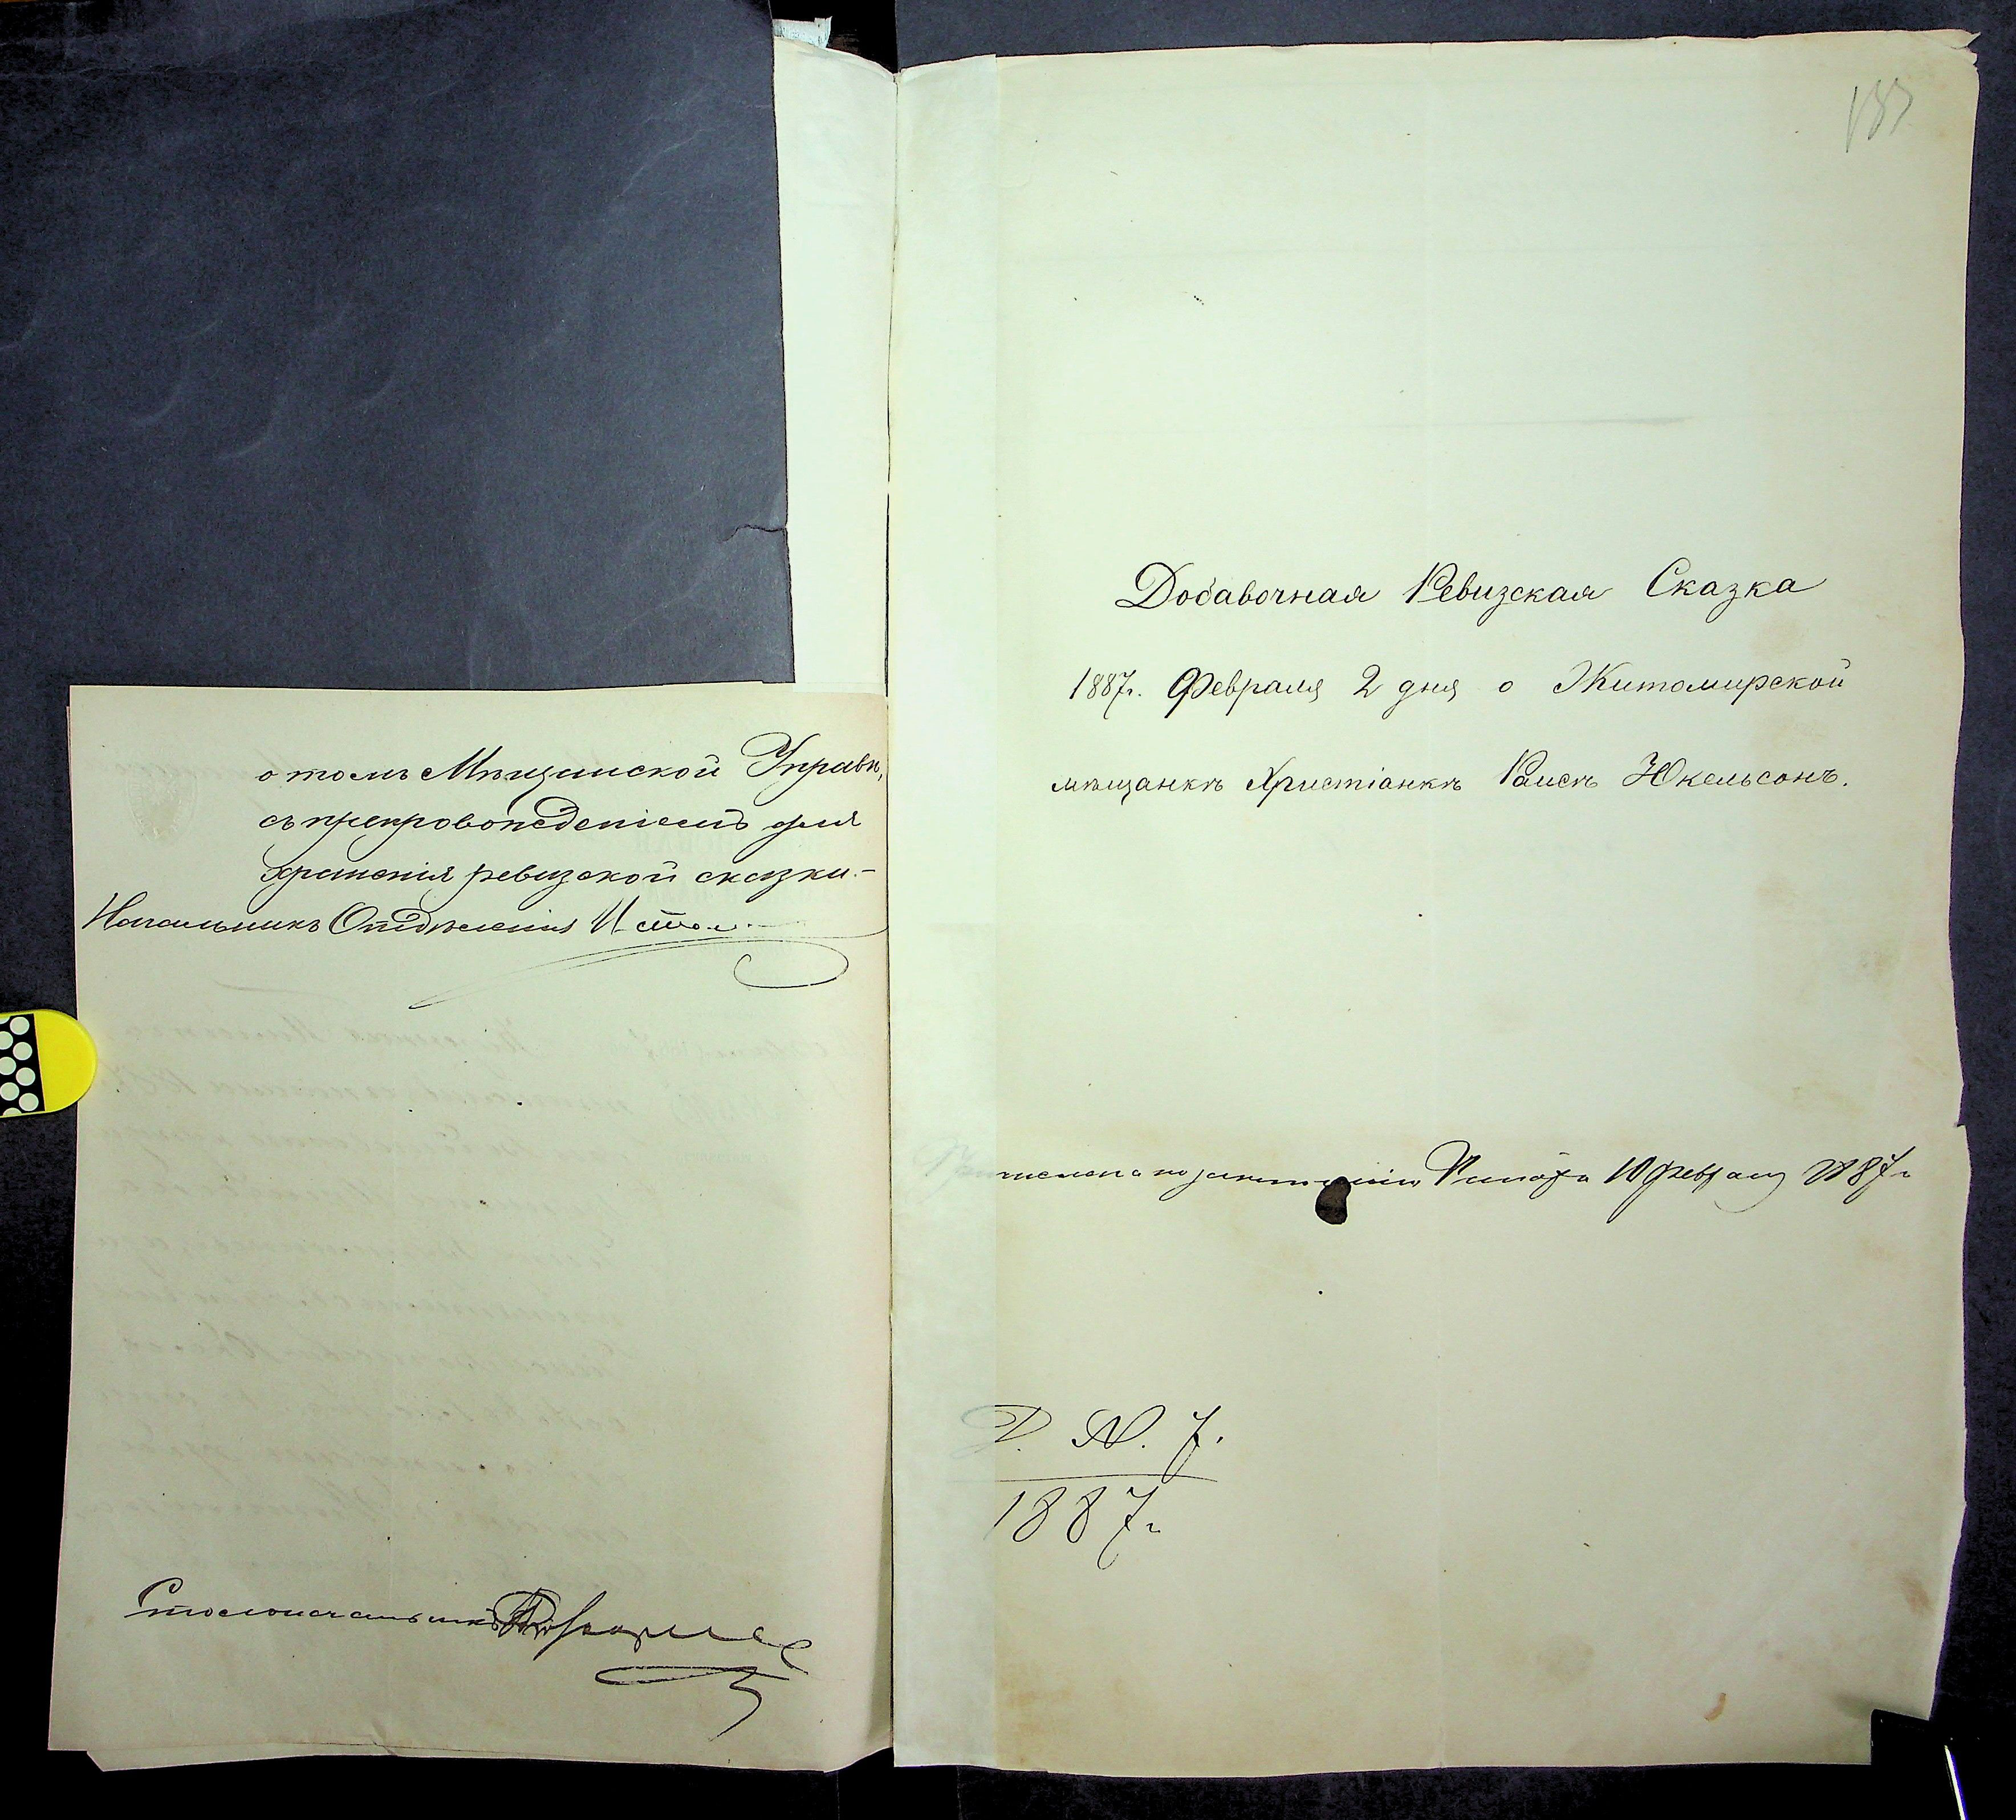 о томъ Мѣщанской Управѣ,
съ препровожденіемъ для
храненія ревизской сказки.-
Начальникъ Отдѣленія
Столоначальникъ
187
Добавочная Ревизская Сказка
1887г. Февраля 2 дня о Житомирской
мѣщанкѣ Христіанкѣ Раисѣ Юкельсонъ.
10 февраля 1887г
Д. №. 7.
1887г